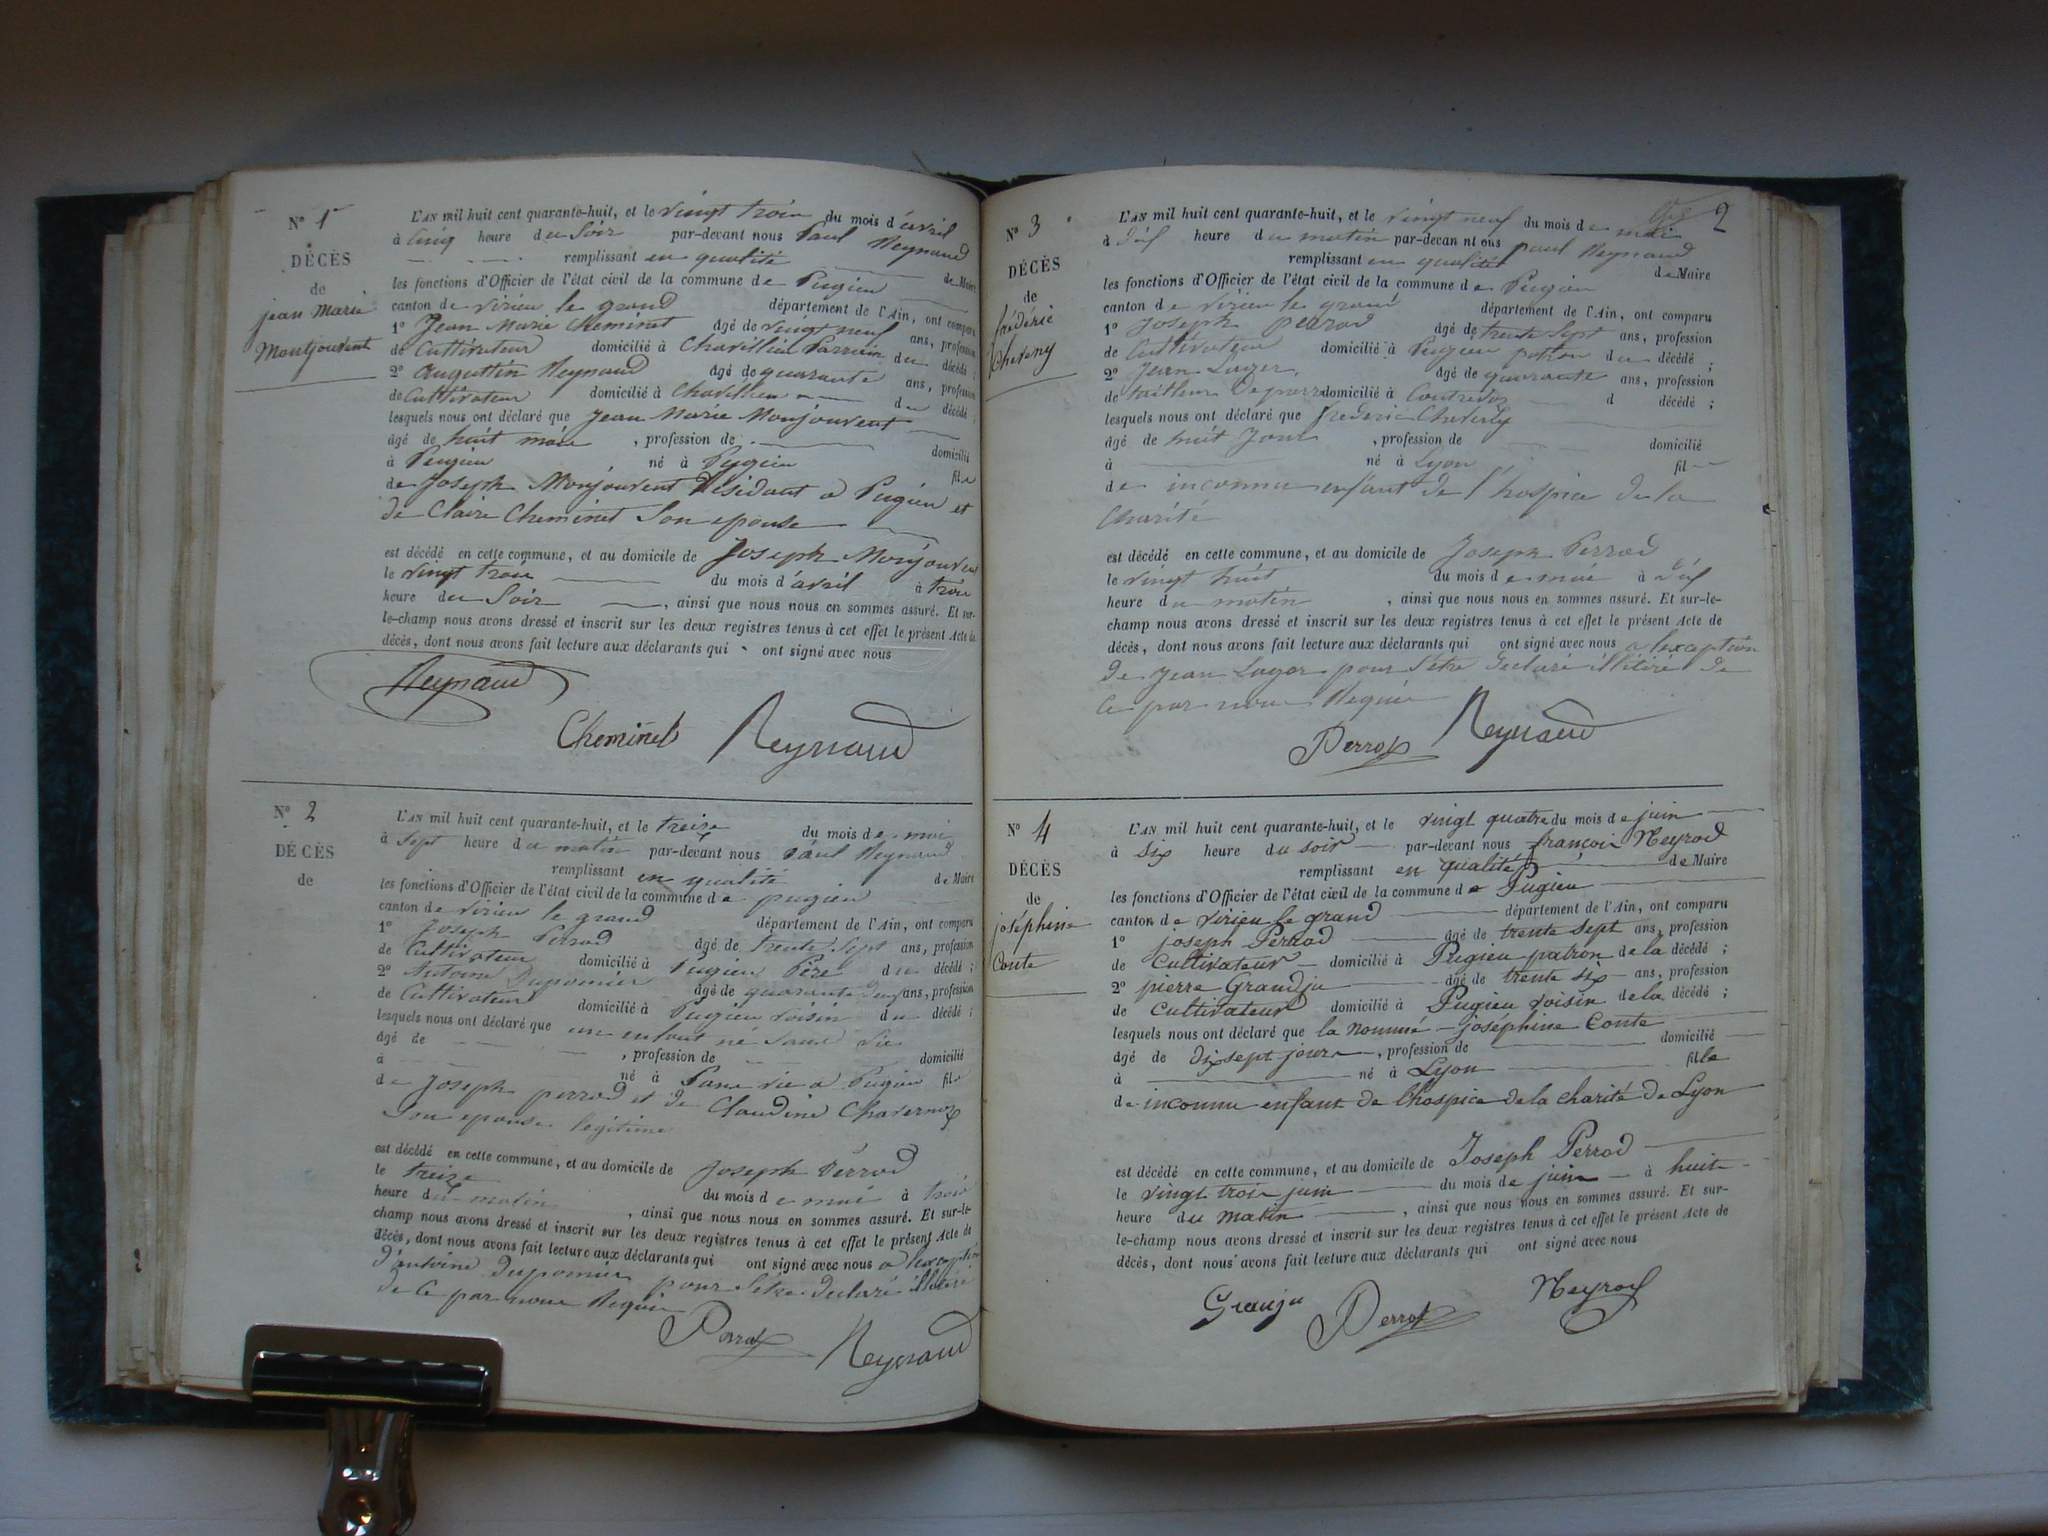 N° 1er
DÉCÈS
de
jean Marie
Montjouvent
L'AN mil huit cent quarante-huit, et le vingt trois du mois d'avril
à cinq heure du Soir par-devant nous Paul Reynaud
remplissant en qualité de Maire
les fonctions d'Officier de l'état civil de la commune de Pugieu
canton de virieu le grand département de l'Ain, ont comparu
1° Jean Marie Cheminet âgé de vingt neuf ans, profession
de Cultivateur domicilié à Chavillieu Parrain du décédé ;
2° Augustin Reynaud âgé de quarante ans, profession
de Cultivateur domicilié à Chavillieu du décédé
lesquels nous ont déclaré que Jean Marie Monjouvent
âgé de huit mois , profession de domicilié
à Pugieu né à Pugieu fils
de Joseph Monjouvent Résidant a Pugieu et
de Claire Cheminet Son epouse
est décédé en cette commune, et au domicile de Joseph Monjouvent
le vingt trois du mois d'avril à trois
heure du Soir , ainsi que nous nous en sommes assuré. Et sur-
le-champ nous avons dressé et inscrit sur les deux registres tenus à cet effet le présent Acte de
décès, dont nous avons fait lecture aux déclarants qui ont signé avec nous
Reynaud
Cheminet Reynaud
N° 2
DÉCÈS
de
L'AN mil huit cent quarante-huit, et le treize du mois de mai
à sept heure du matin par-devant nous Paul Reynaud
remplissant en qualité de Maire
les fonctions d'Officier de l'état civil de la commune de pugieu
canton de virieu le grand département de l'Ain, ont comparu
1° Joseph Perrod âgé de trente Sept ans, profession
de Cultivateur domicilié à Pugieu Père du décédé ;
2° Antoine Dupomier âgé de quarante deux ans, profession
de Cultivateur domicilié à Pugieu voisin du décédé ;
lesquels nous ont déclaré que un enfant né Sans vie
âgé de , profession de domicilié
à né à Sans vie a Pugieu fils
de Joseph perrod et de Claudine
Son epouse legitime
est décédé en cette commune, et au domicile de Joseph Perrod
le treize du mois de mai à trois
heure du matin , ainsi que nous nous en sommes assuré. Et sur-le-
champ nous avons dressé et inscrit sur les deux registres tenus à cet effet le présent Acte de
décès, dont nous avons fait lecture aux déclarants qui ont signé avec nous a l'exception
d'antoine Dupomier pour S'etre declaré illiteré
de Ce par nous Requis
Perrod Reynaud
2
N° 3
DÉCÈS
de
frédéric
L'AN mil huit cent quarante-huit, et le vingt neuf du mois de mai
à dix heure du matin par-devant nous paul Reynaud
remplissant en qualité de Maire
les fonctions d'Officier de l'état civil de la commune de Pugieu
canton de virieu le grand département de l'Ain, ont comparu
1° Joseph perrod âgé de trente Sept ans, profession
de Cultivateur domicilié à Pugieu patron du décédé ;
2° Jean Luger âgé de quarante ans, profession
de tailleur De domicilié à d décédé ;
lesquels nous ont déclaré que frederic
âgé de huit Jour , profession de domicilié
à né à Lyon fil
de inconnu enfant de l'hospice de la
Charité
est décédé en cette commune, et au domicile de Joseph Perrod
le vingt huit du mois de mai à dix
heure du matin , ainsi que nous nous en sommes assuré. Et sur-le-
champ nous avons dressé et inscrit sur les deux registres tenus à cet effet le présent Acte de
décès, dont nous avons fait lecture aux déclarants qui ont signé avec nous a lexception
De Jean Luger pour S'etre declaré illiteré de
Ce par nous Requis
Perrod Reynaud
N° 4
DÉCÈS
de
joséphine
Conte
L'AN mil huit cent quarante-huit, et le vingt quatre du mois de juin
à six heure du soir par-devant nous françois Neyrod
remplissant en qualité de Maire
les fonctions d'Officier de l'état civil de la commune de Pugieu
canton de virieu le grand département de l'Ain, ont comparu
1° joseph Perrod âgé de trente sept ans, profession
de Cultivateur domicilié à Pugieu patron de la décédé ;
2° pierre Grandju âgé de trente six ans, profession
de Cultivateur domicilié à Pugieu voisin de la décédé ;
lesquels nous ont déclaré que la nommé joséphine Conte
âgé de dix sept jours , profession de domicilié
à né à Lyon fille
de inconnu enfant de l'hospice de la charité de Lyon
est décédé en cette commune, et au domicile de Joseph Perrod
le vingt trois juin du mois de juin à huit
heure du matin , ainsi que nous nous en sommes assuré. Et sur-
le-champ nous avons dressé et inscrit sur les deux registres tenus à cet effet le présent Acte de
décès, dont nous avons fait lecture aux déclarants qui ont signé avec nous
Granju Perrod Neyrod